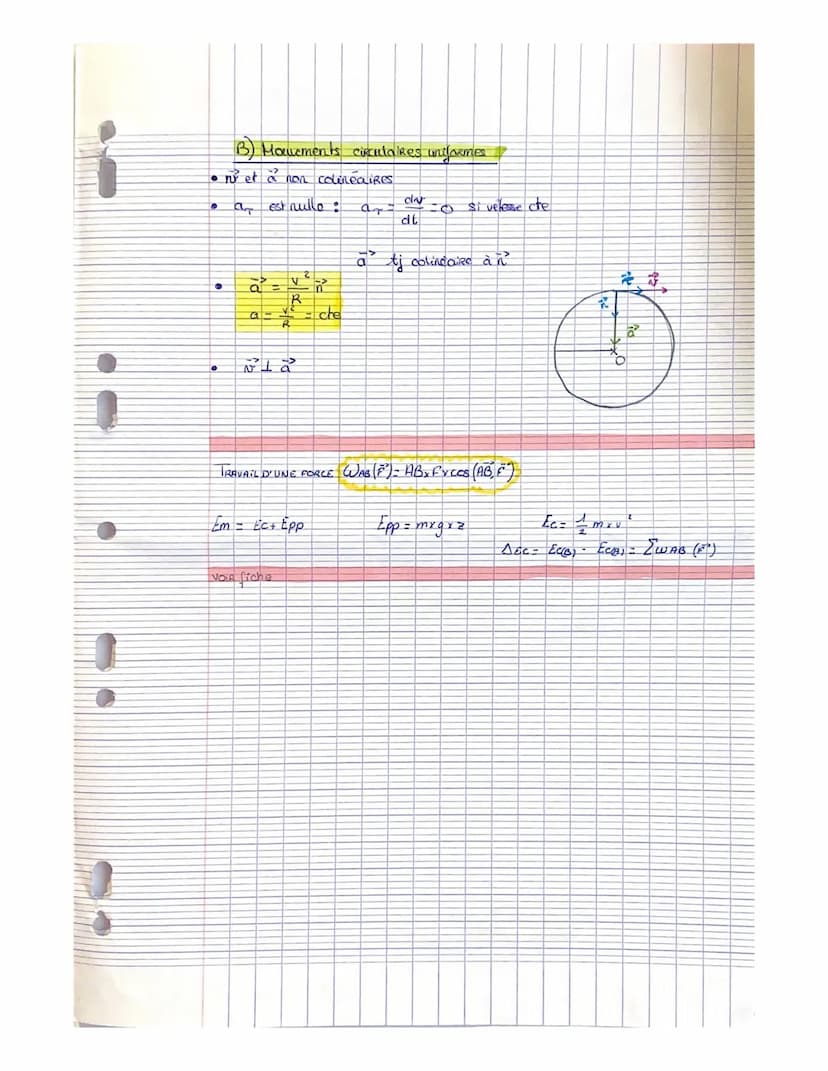 B) Mouvements circulaires uniformes
• v⃗ et a⃗ non colinéaires
• a_T est nulle : a_T = dv/dt = 0 si vitesse cte
a⃗ tj colinéaire à n⃗
• a⃗ = v²/R n⃗
a = v²/R = cte
• v⃗ ⊥ a⃗
t⃗ v⃗
n⃗
a⃗
O
TRAVAIL D'UNE FORCE W_AB(F⃗) = AB x F x cos (AB⃗, F⃗)
Em = Ec + Epp Epp = m x g x z Ec = 1/2 m x v²
ΔEc = Ec(B) - Ec(A) = ΣW AB (F⃗)
VOIR fiche